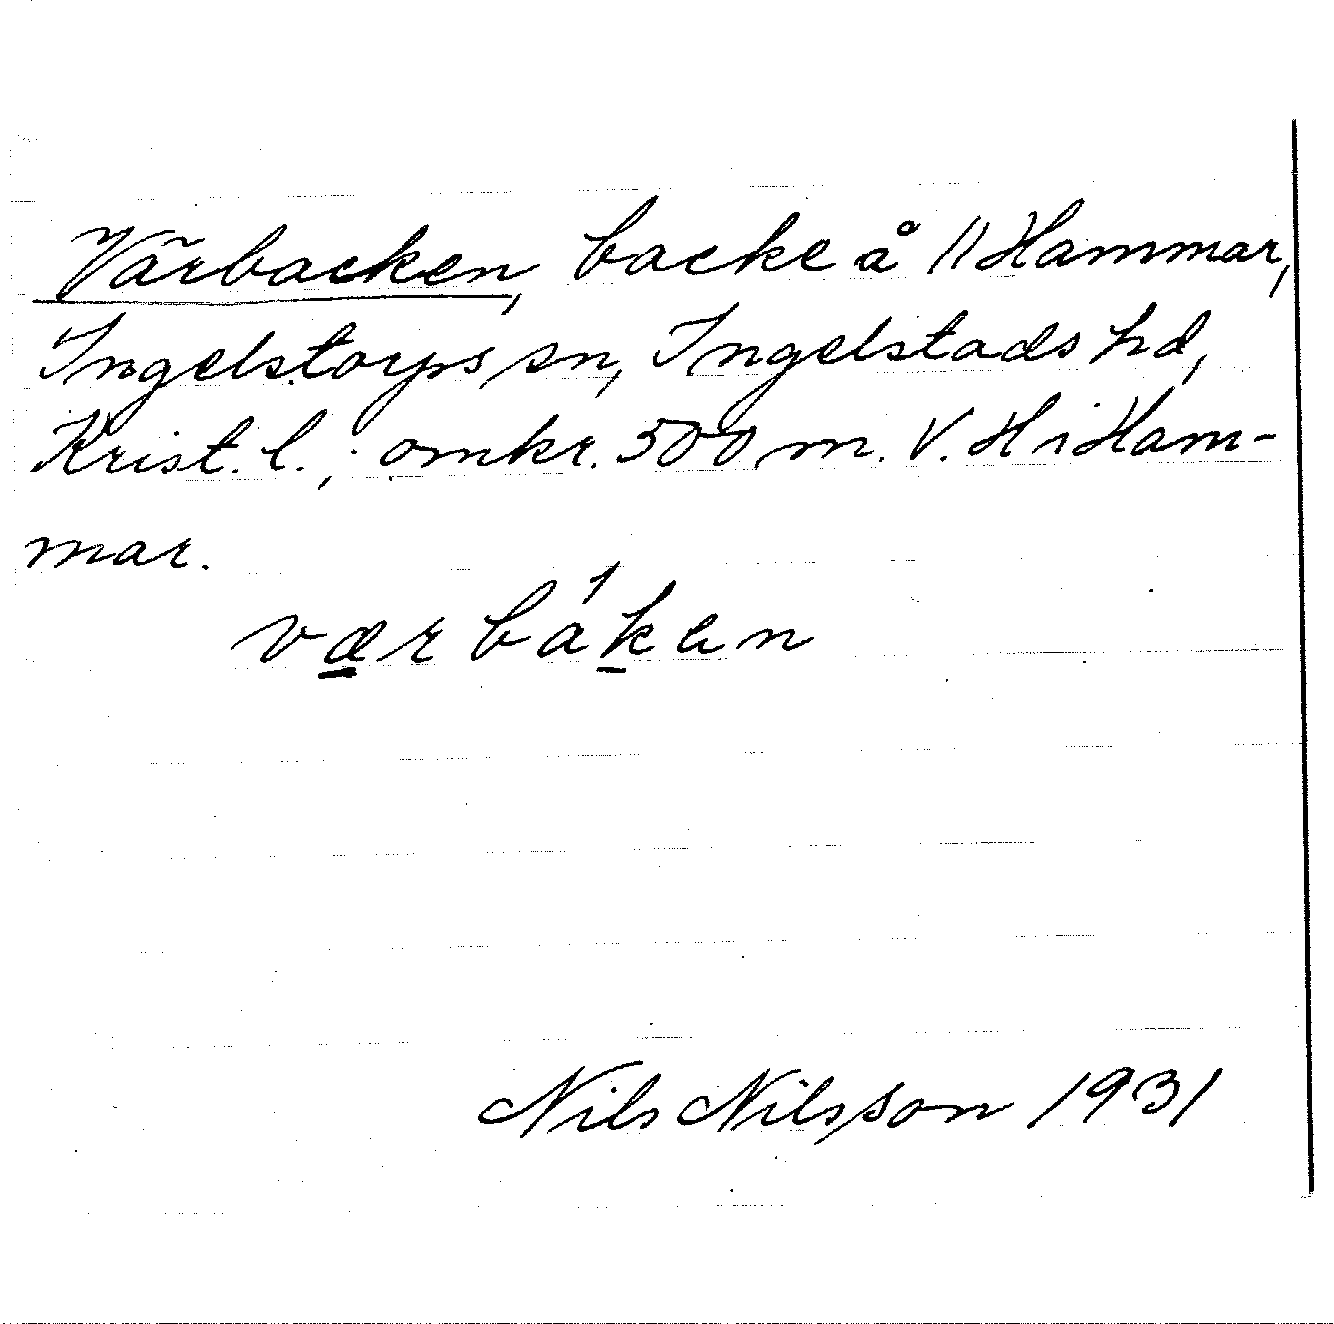 Värbacken, backe å 11 Hammar,
Ingelstorps sn, Ingelstads hd,
Krist. l.; omkr. 500 m. V. H i Ham-
mar.
værbáken
Nils Nilsson 1931